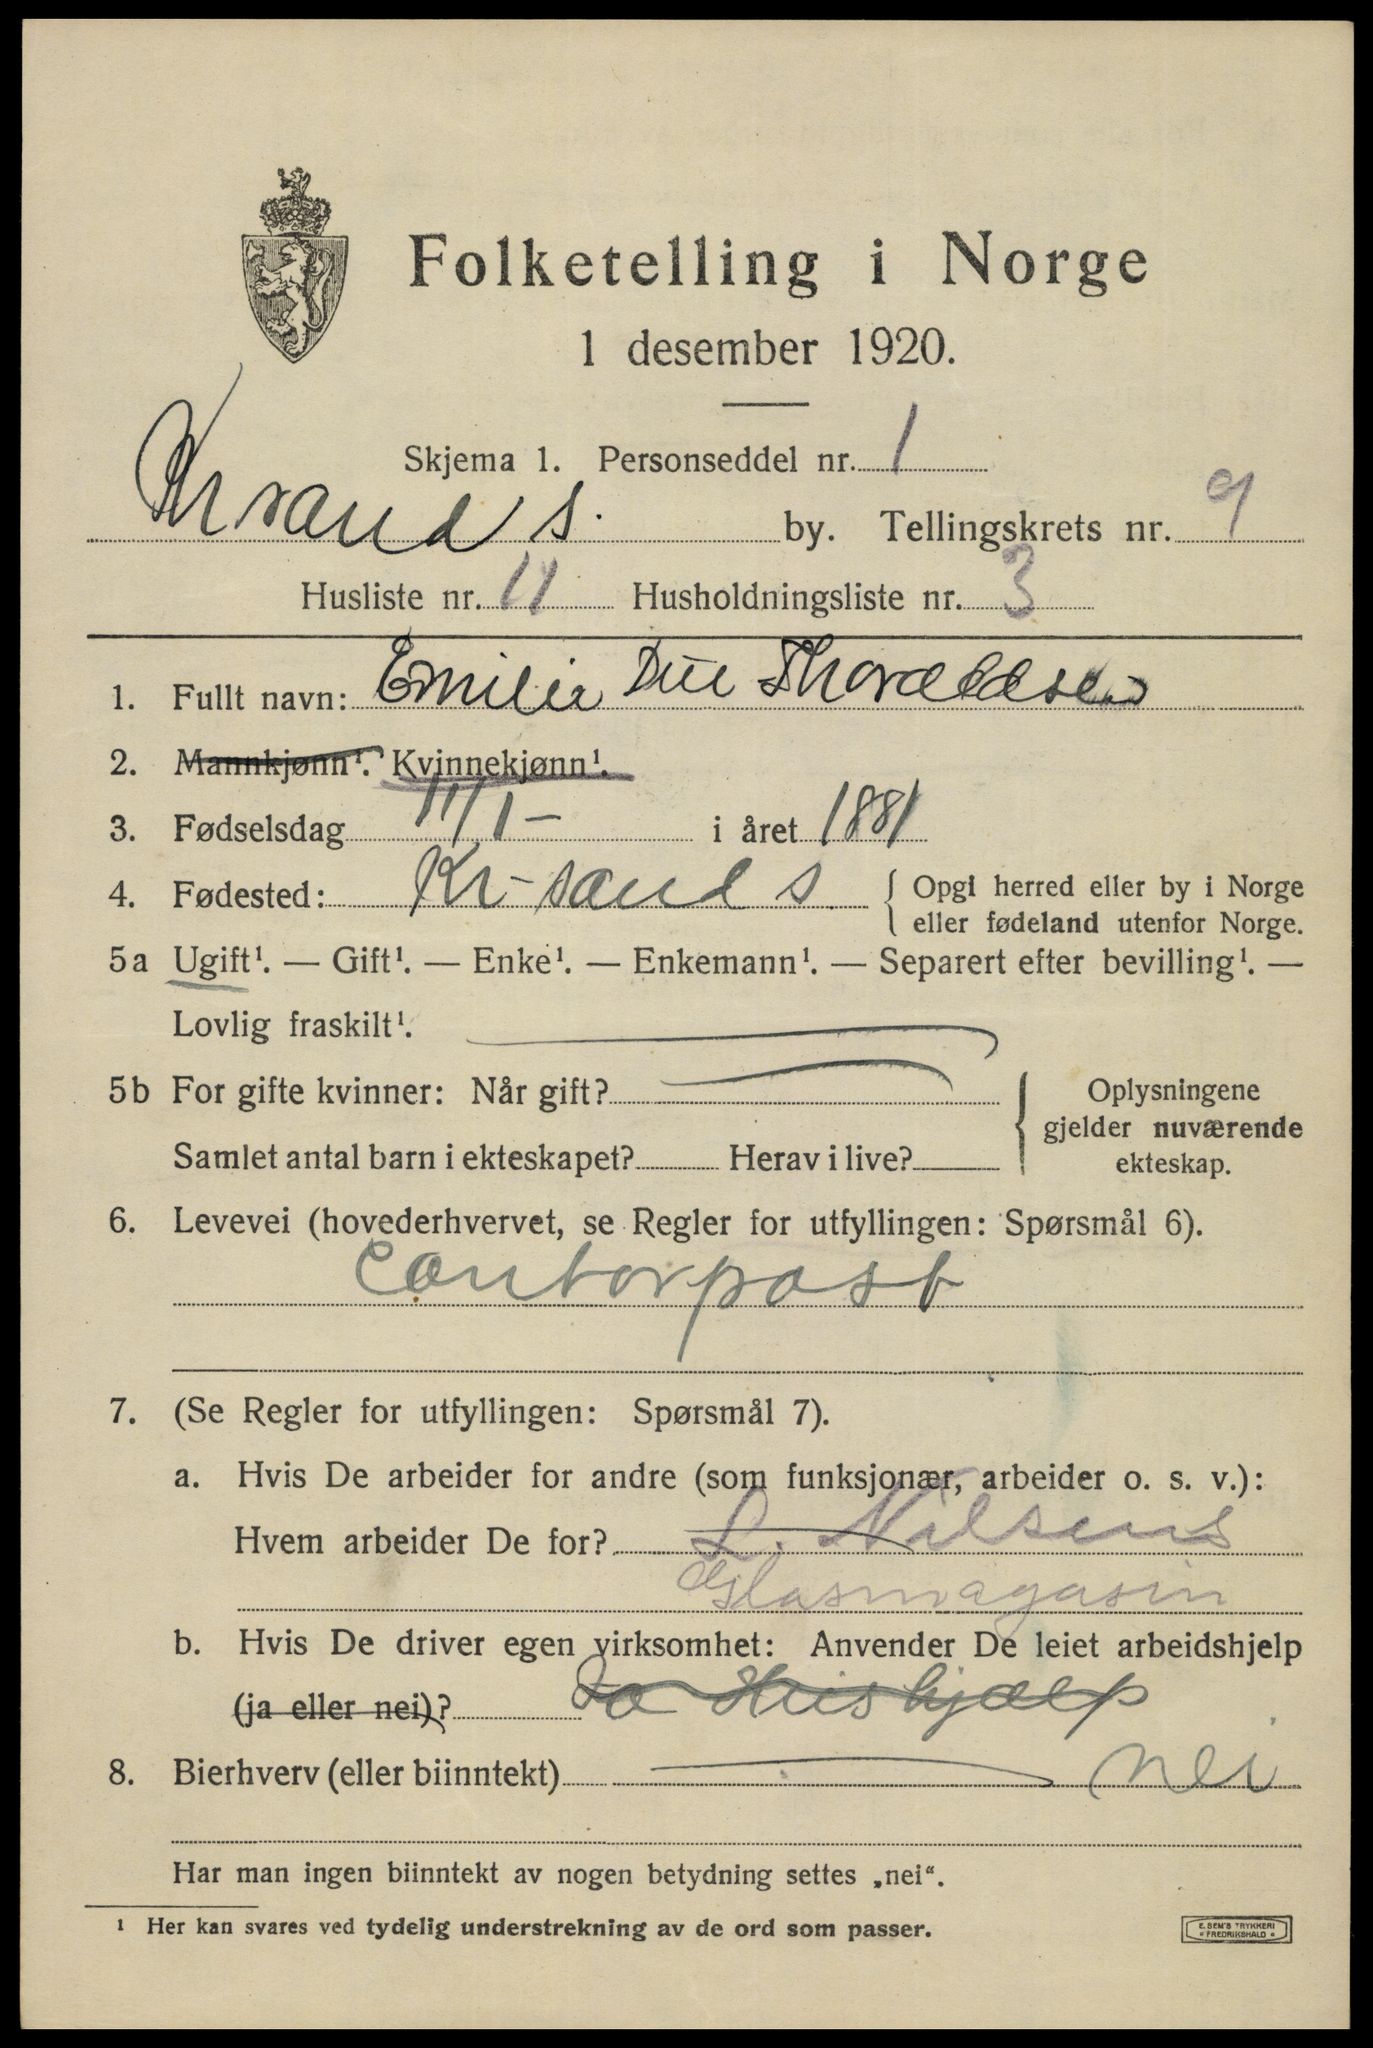 Folketelling i Norge
1 desember 1920.
Skjema 1. Personseddel nr. 1
Krsand s. by. Tellingskrets nr. 9
Husliste nr. 11 Husholdningsliste nr. 3
1. Fullt navn: Emilie Due Thoraldsen
2. Mannkjønn¹. Kvinnekjønn¹.
3. Fødselsdag 11/1 - i året 1881
4. Fødested: Kr-sand s { Opgi herred eller by i Norge
eller fødeland utenfor Norge.
5a Ugift¹. — Gift¹. — Enke¹. — Enkemann¹. — Separert efter bevilling¹. —
Lovlig fraskilt¹.
5b For gifte kvinner: Når gift? Oplysningene
gjelder nuværende
Samlet antal barn i ekteskapet? Herav i live? ekteskap.
6. Levevei (hovederhvervet, se Regler for utfyllingen: Spørsmål 6).
Contorpost
7. (Se Regler for utfyllingen: Spørsmål 7).
a. Hvis De arbeider for andre (som funksjonær, arbeider o. s. v.):
Hvem arbeider De for? L. Nilsens
Glasmagasin
b. Hvis De driver egen virksomhet: Anvender De leiet arbeidshjelp
(ja eller nei)? Ja Huishjælp
8. Bierhverv (eller biinntekt) nei
Har man ingen biinntekt av nogen betydning settes „nei“.
¹ Her kan svares ved tydelig understrekning av de ord som passer.
E. SEM'S TRYKKERI
FREDRIKSHALD